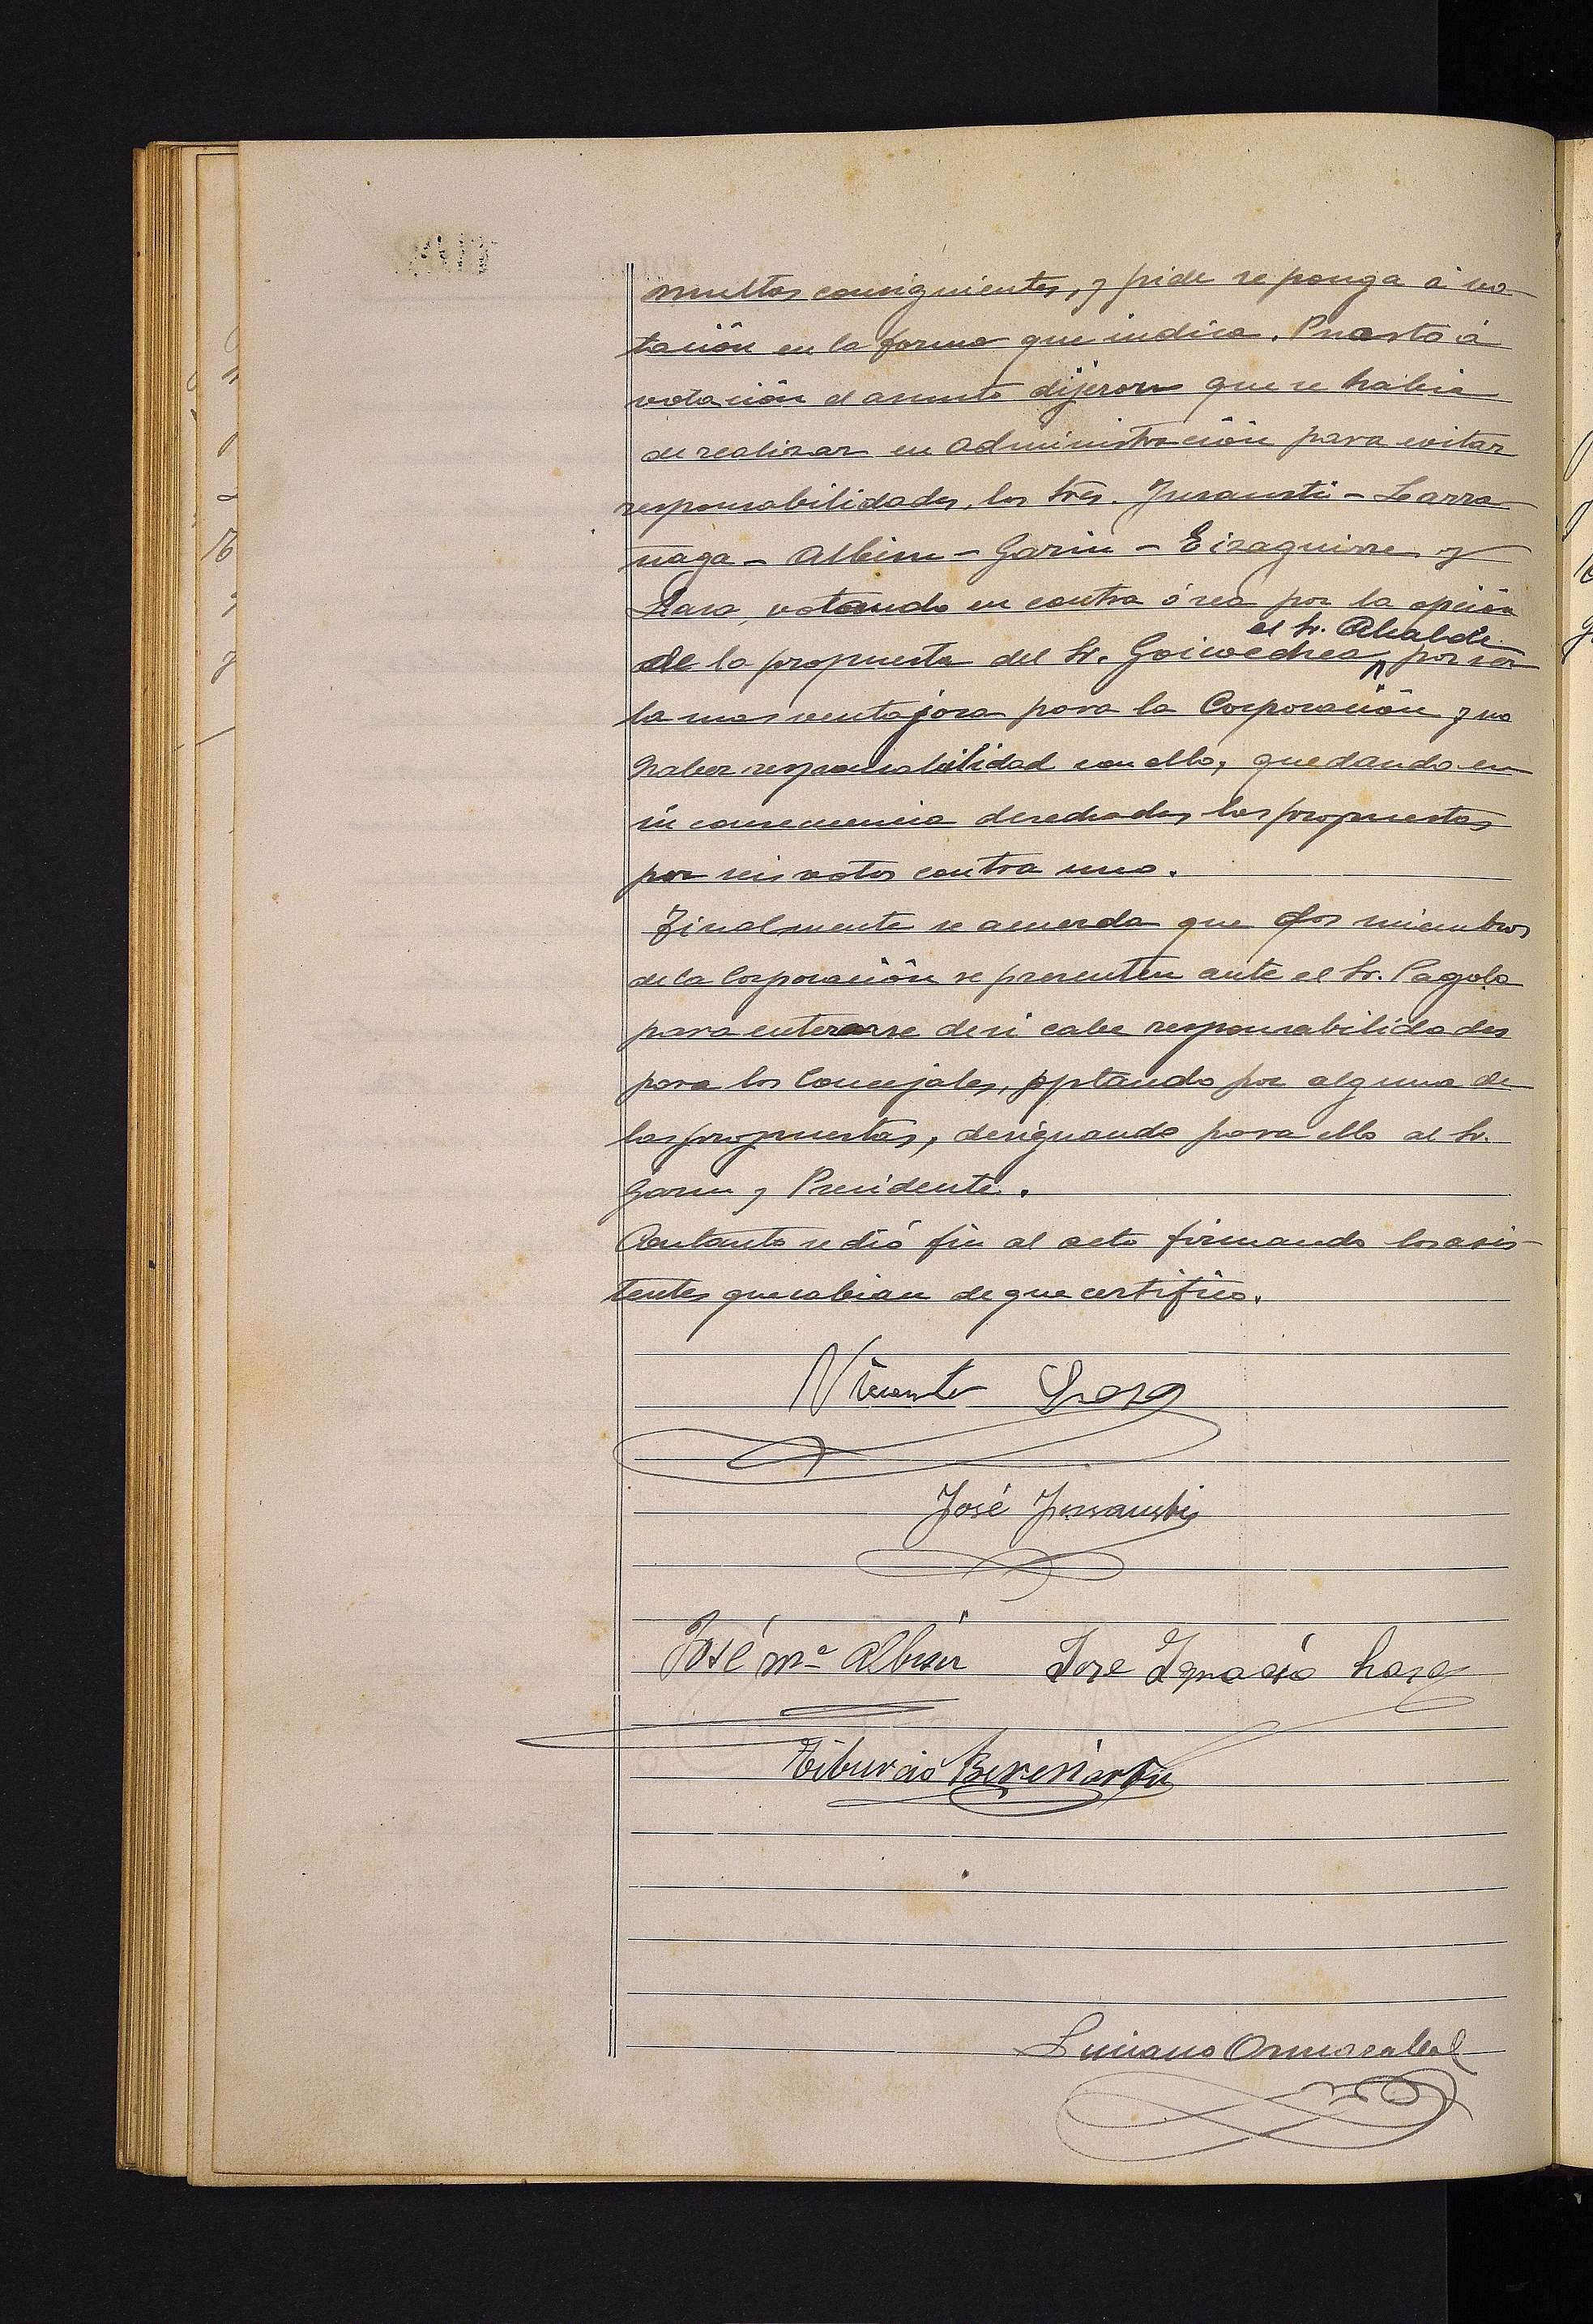 multas consiguientes, y pide se ponga á vo-
tación en la forma que indica. Puesto á
votación el asunto dijeron que se habia
de realizar en administración para evitar
responsabilidades, los Sres. Insausti - Larra
naga - Albisu - Garin - Eizaguirre y
Lasa, votando en contra ó sea por la opción
el Sr. Alcalde
de la propuesta del Sr. Goicoechea, por ser
la mas ventajosa para la Corporación y no
haber responsabilidad con ello, quedando en
su consecuencia desechadas las propuestas
por seis votos contra uno.
Finalmente se acuerda que dos miembros
de la Corporación se presenten ante el Sr. Pagola
para enterarse de si cabe responsabilidades
para los Concejales, optando por alguna de
las propuestas, designando para ello al Sr.
Garin y Presidente.
Con tanto se dió fin al acto firmando los asis-
tentes que sabian de que certifico.
Vicente Lasa
José Insausti
José Mª Albisu José Ignacio Lasa
Tiburcio Beresiartu
Luciano Ormazabal